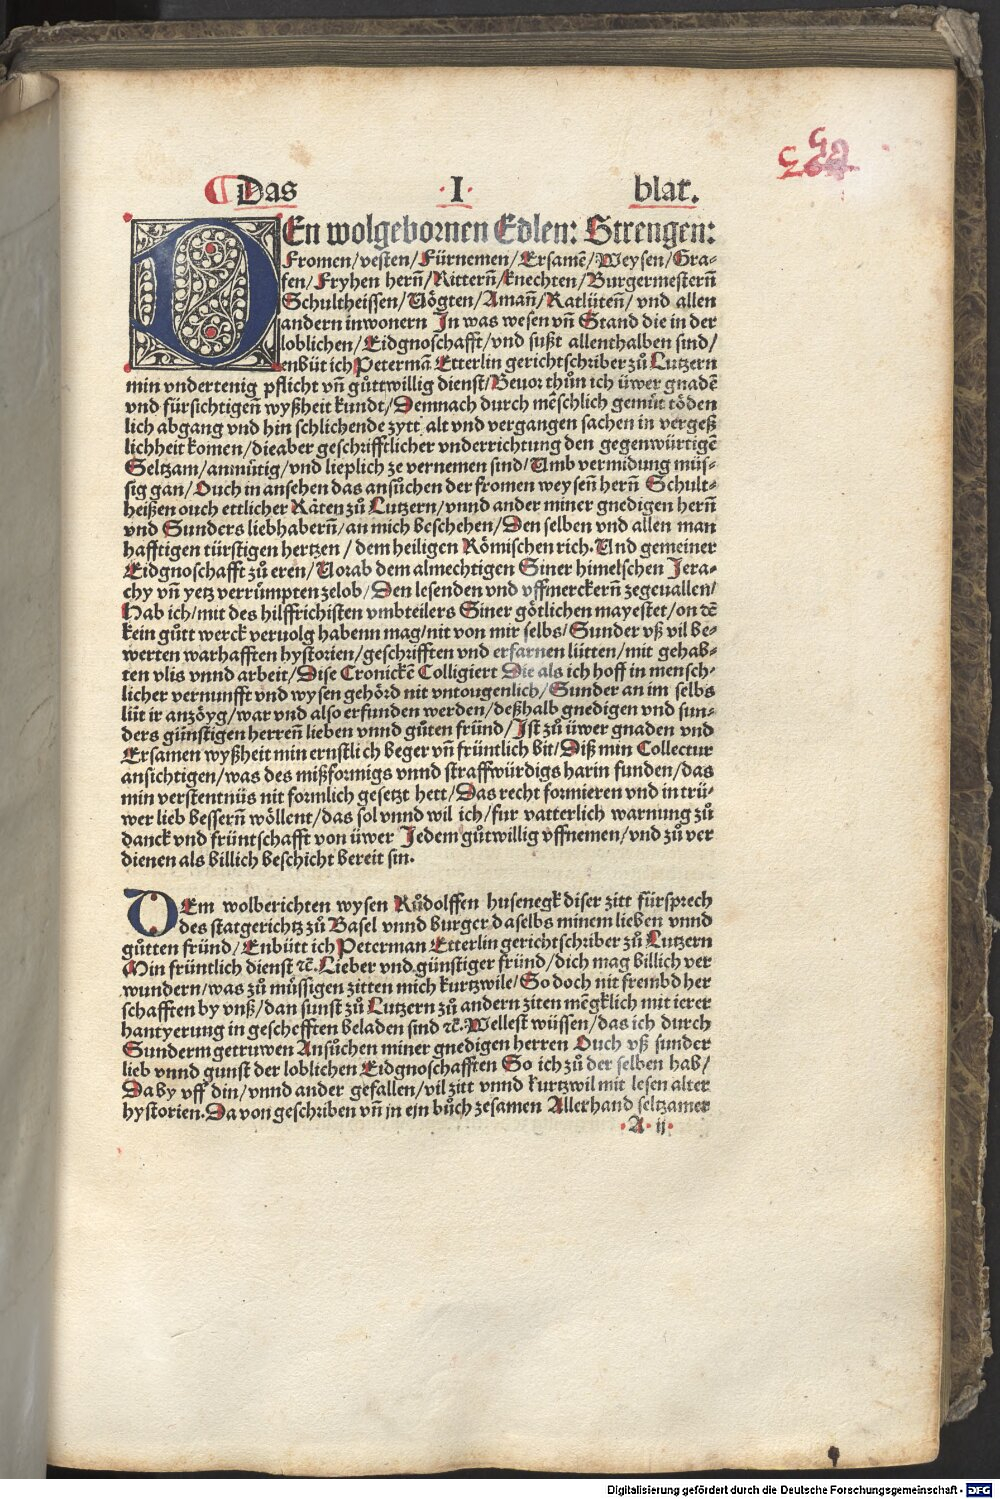 Das ·I· blat.
DEn wolgebornen Edlen: Strengen:
Fromen/vesten/Fürnemen/Ersamē/Weysen/Gra-
fen/Fryhen hern̄/Rittern̄/knechten/Burgermestern̄
Schultheissen/Vögten/Aman̄/Ratlüten̄/vnd allen
andern inwonern In was wesen vn̄ Stand die in der
loblichen/Eidgnoschafft/vnd sußt allenthalben sind/
enbüt ich Petermā Etterlin gerichtschriber zů Lutzern
min vndertenig pflicht vn̄ gůttwillig dienst/Beuor thůn ich üwer gnadē
vnd fürsichtigen̄ wyßheit kundt/Demnach durch mēschlich gemüt töden
lich abgang vnd hin schlichende zytt alt vnd vergangen sachen in vergeß
lichheit komen/die aber geschrifftlicher vnderrichtung den gegenwürtigē
Seltzam/anmütig/vnd lieplich ze vernemen sind/Umb vermidung müs-
sig gan/Ouch in ansehen das ansůchen der fromen weysen̄ hern̄ Schult-
heißen ouch ettlicher Räten zů Lutzern/vnnd ander miner gnedigen hern̄
vnd Sunders liebhabern̄/an mich beschehen/Den selben vnd allen man
hafftigen türstigen hertzen/dem heiligen Römischen rich. Und gemeiner
Eidgnoschafft zů eren/Vorab dem almechtigen Siner himelschen Jera-
chy vn̄ yetz verrümpten ze lob/Den lesenden vnd vffmerckern̄ ze geuallen/
Hab ich/mit des hilffrichisten vmbteilers Siner götlichen mayestet/on dē
kein gůtt werck veruolg habenn mag/nit von mir selbs/Sunder vß vil be-
werten warhafften hystorien/geschrifften vnd erfarnen lütten/mit gehab-
ten vlis vnnd arbeit/Dise Cronickē Colligiert Die als ich hoff in mensch-
licher vernunfft vnd wysen gehörd nit vntougenlich/Sunder an im selbs
lüt ir anzöyg/war vnd also erfunden werden/deßhalb gnedigen vnd sun-
ders günstigen herren̄ lieben vnnd gůten fründ/Ist zů üwer gnaden vnd
Ersamen wyßheit min ernstlich beger vn̄ früntlich bit/Diß min Collectur
ansichtigen/was des mißformigs vnnd straffwürdigs harin funden/das
min verstentnüs nit formlich gesetzt hett/Das recht formieren vnd in trü-
wer lieb bessern̄ wöllent/das sol vnnd wil ich/fur vatterlich warnung zů
danck vnd früntschafft von üwer Jedem gůtwillig vffnemen/vnd zů ver
dienen als billich beschicht bereit sin.
DEm wolberichten wysen Růdolffen husenegk diser zitt fürsprech
des statgerichtz zů Basel vnnd burger daselbs minem lieben vnnd
gůtten fründ/Enbütt ich Peterman Etterlin gerichtschriber zů Lutzern
Min früntlich dienst ꝛc̄. Lieber vnd günstiger fründ/dich mag billich ver
wundern/was zů müssigen zitten mich kurtzwile/So doch nit frembd her
schafften by vnß/dan sunst zů Lutzern zů andern ziten mēgklich mit ierer
hantyerung in geschefften beladen sind ꝛc̄. Wellest wüssen/das ich durch
Sunderm getruwen Ansůchen miner gnedigen herren Ouch vß sunder
lieb vnnd gunst der loblichen Eidgnoschafften So ich zů der selben hab/
Daby vff din/vnnd ander gefallen/vil zitt vnnd kurtzwil mit lesen alter
hystorien. Da von geschriben vn̄ jn ejn bůch zesamen Allerhand seltzamer
·A· ij·
Digitalisierung gefördert durch die Deutsche Forschungsgemeinschaft - DFG